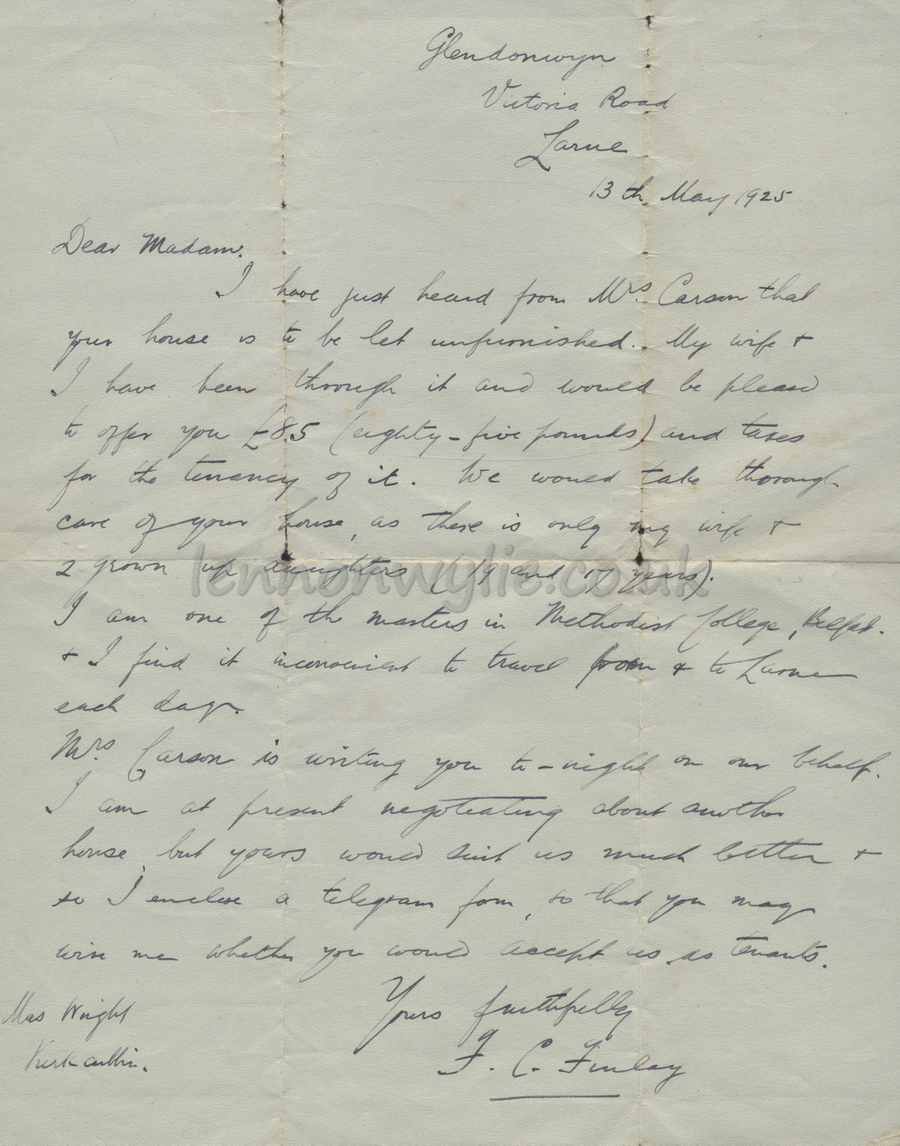 Glendonwyn
Victoria Road
Larne
13th. May 1925
Dear Madam.
I have just heard from Mrs. Carson that
your house is to be let unfurnished. My wife &
I have been through it and would be pleased
to offer you £85 (eighty-five pounds) and taxes
for the tenancy of it. We would take thorough
care of your house, as there is only my wife &
2 grown up daughters (19 and 17 years).
lennonwylie.co.uk
I am one of the masters in Methodist College, Belfast.
& I find it inconvenient to travel from & to Larne
each day.
Mrs. Carson is writing you to-night on our behalf.
I am at present negotiating about another
house, but yours would suit us much better &
so I enclose a telegram form, so that you may
wire me whether you would accept us as tenants.
Yours faithfully
F. C. Finlay
Mrs Wright